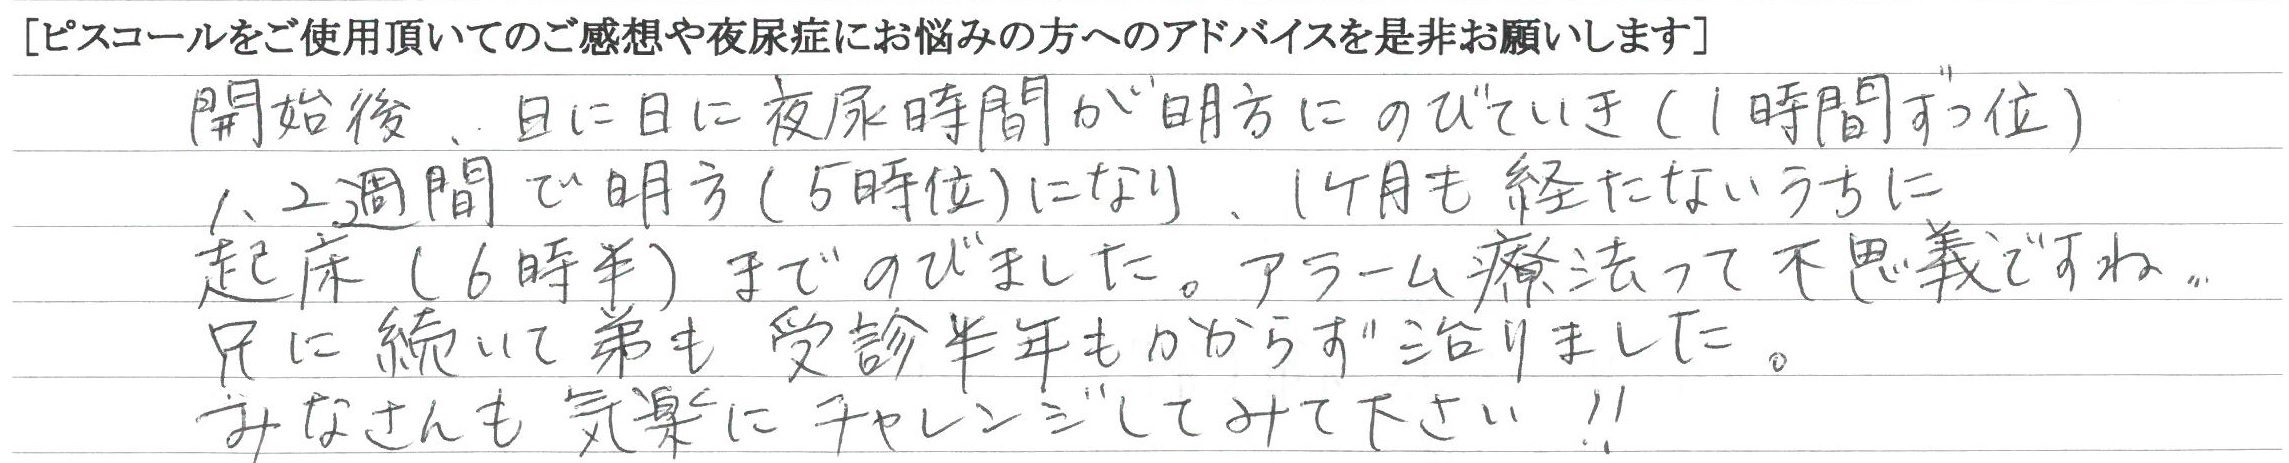 [ピスコールをご使用頂いてのご感想や夜尿症にお悩みの方へのアドバイスを是非お願いします]
開始後、日に日に夜尿時間が明方にのびていき(1時間ずつ位)
1、2週間で明方(5時位)になり、1ケ月も経たないうちに
起床(6時半)までのびました。アラーム療法って不思議ですね。
兄に続いて弟も受診半年もかからず治りました。
みなさんも気楽にチャレンジしてみて下さい!!